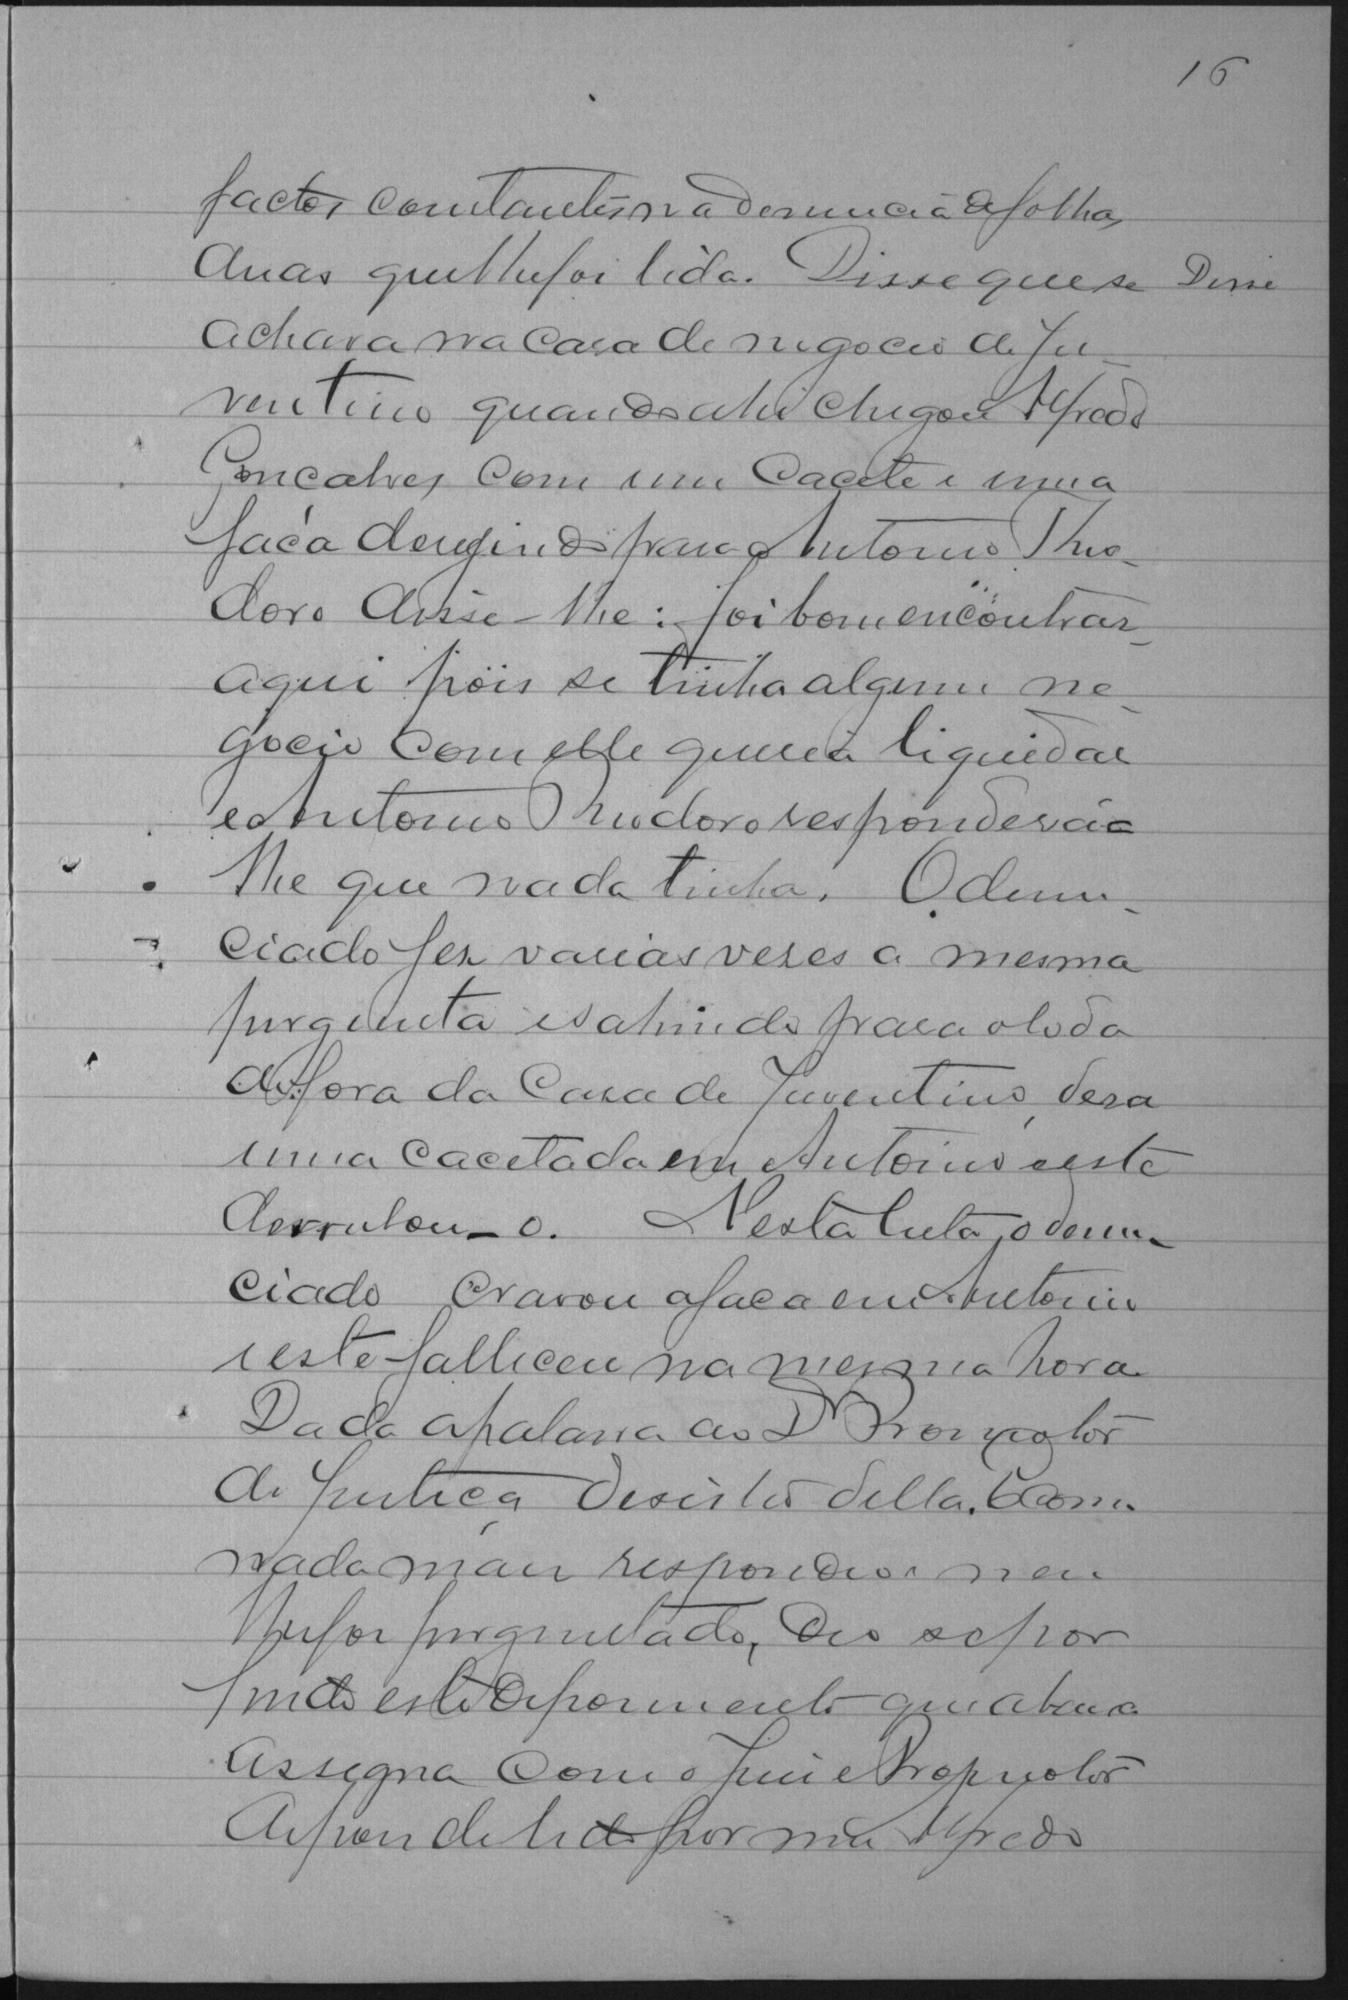 16
factos constantes na denuncia de folhas
duas que lhe foi lida. Disse que se Disse
achava na casa de negocio de Ju-
ventino quando ahi chegou Alfredo
Goncalves com um cacete e uma
faca derigindo para Antonio Theo-
doro disse-lhe: foi bom encontrar
aqui pois se tinha algum ne-
gocio com elle queria liquidar
e Antonio Theodoro respondera a
lhe que nada tinha. O denun-
ciado fez varias vezes a mesma
pergunta e sahindo para o lado
de fora da casa de Juventino, dera
uma cacetada em Antonio e este
derrubou-o. Nesta luta, o denun-
ciado cravou a faca em Antonio
e este falleceu na mesma hora.
Dada a palavra ao Dr Promotor
de Justiça desistio della. E como
nada mais respondeu nem
lhe foi perguntado, deo se por
findo este depoimento que abaixo
assigna com o Juiz e Promotor
depois de lido por mim Alfredo